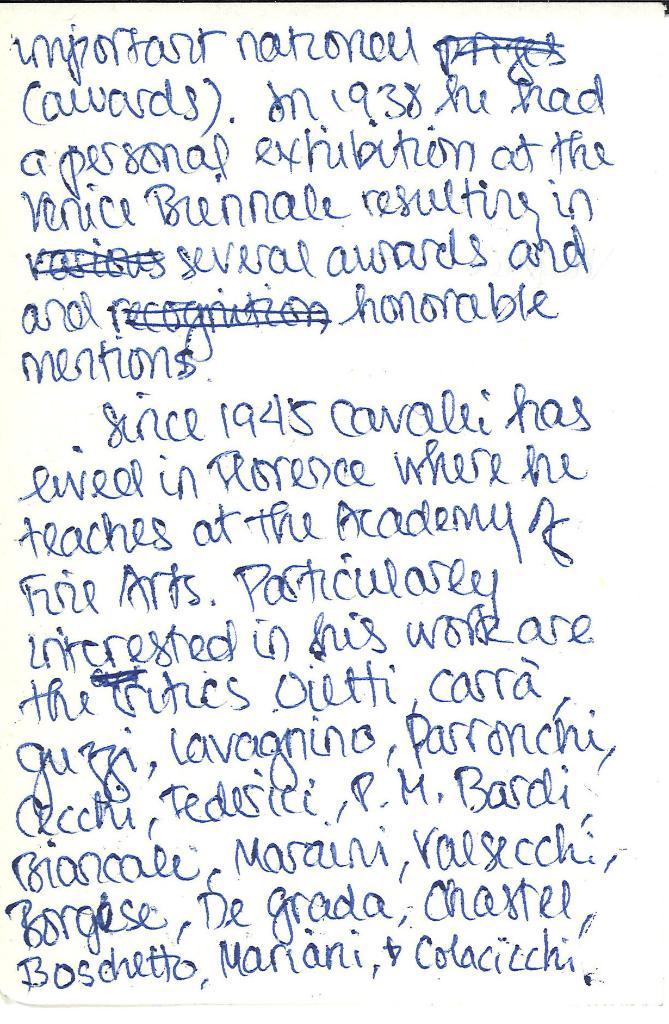 important national prizes
(awards). In 1938 he had
a personal exhibition at the
Venice Biennale resulting in
various several awards and
and recognition honorable
mentions.
Since 1945 Cavalli has
lived in Florence where he
teaches at the Academy of
Fine Arts. Particularly
interested in his work are
the critics Oietti, Carrà,
Guzzi, Lavagnino, Parronchi,
Cecchi, Federici, P. M. Bardi,
Biancale, Maraini, Valsecchi,
Borgese, De grada, Chastel,
Boschetto, Mariani, + Colacicchi.